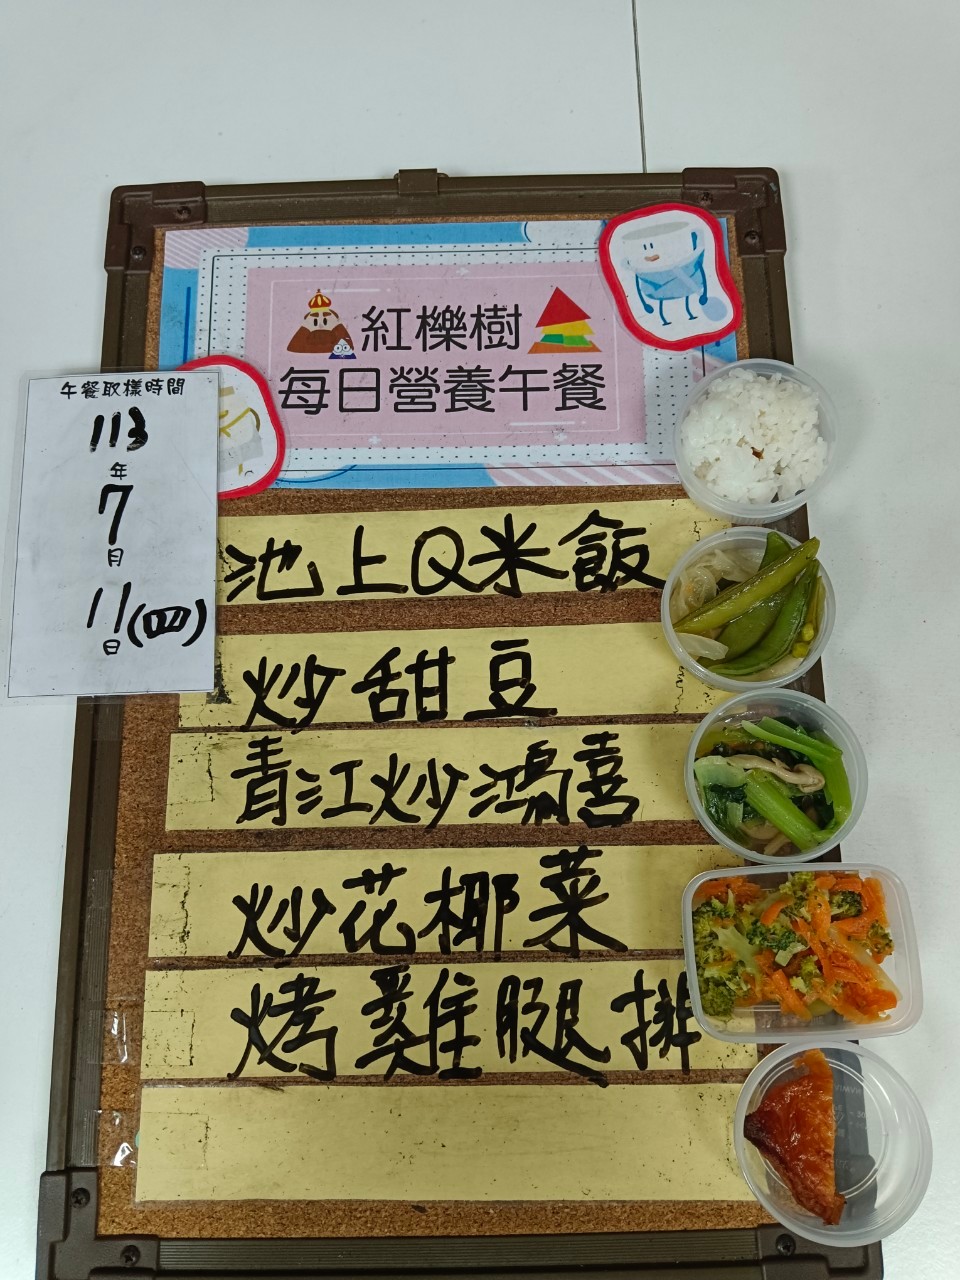 紅櫟樹
每日營養午餐
午餐取樣時間
113
年
7
月
11(四)
日
池上Q米飯
炒甜豆
青江炒鴻喜
炒花椰菜
烤雞腿排